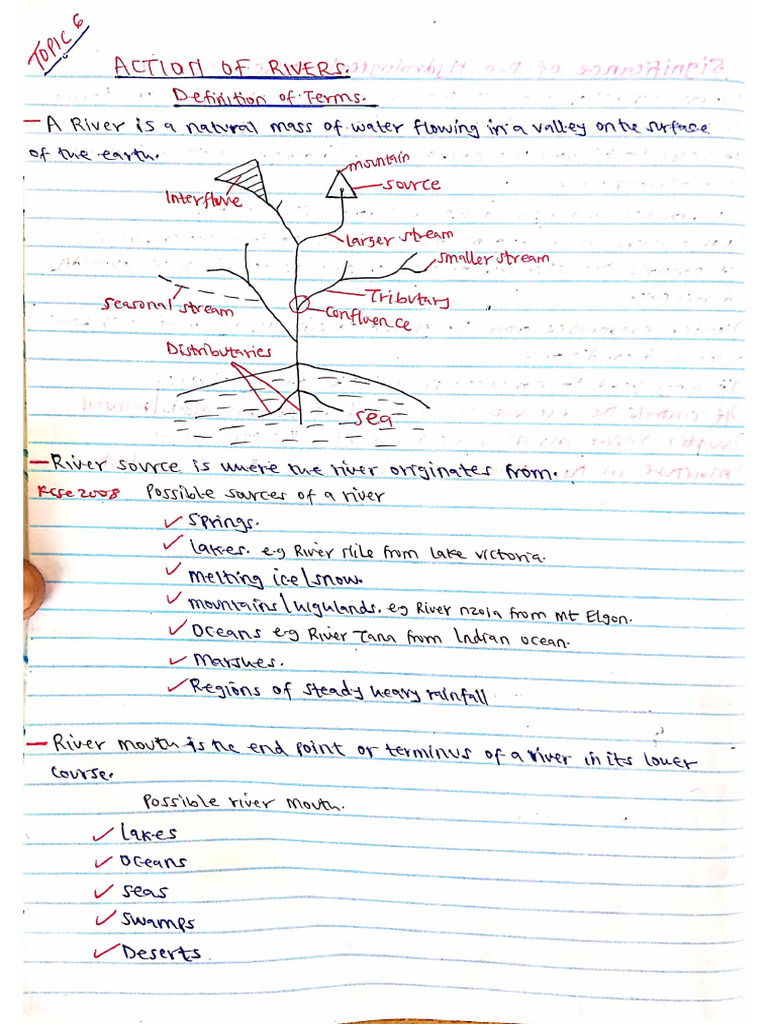 TOPIC 6
ACTION OF RIVERS.
Definition of Terms.
– A River is a natural mass of water flowing in a valley on the surface
of the earth.
mountain
source
Interfluve
larger stream
smaller stream
Tributary
Seasonal stream
Confluence
Distributaries
Sea
– River source is where the river originates from.
KCSE 2008 Possible sources of a river
✓ Springs.
✓ Lakes. e.g River Nile from Lake Victoria.
✓ melting ice/snow.
✓ mountains/highlands. eg River nzoia from Mt Elgon.
✓ Oceans e.g River Tana from Indian ocean.
✓ Marshes.
✓ Regions of steady heavy rainfall
– River mouth is the end point or terminus of a river in its lower
course.
Possible river mouth.
✓ Lakes
✓ Oceans
✓ Seas
✓ Swamps
✓ Deserts.